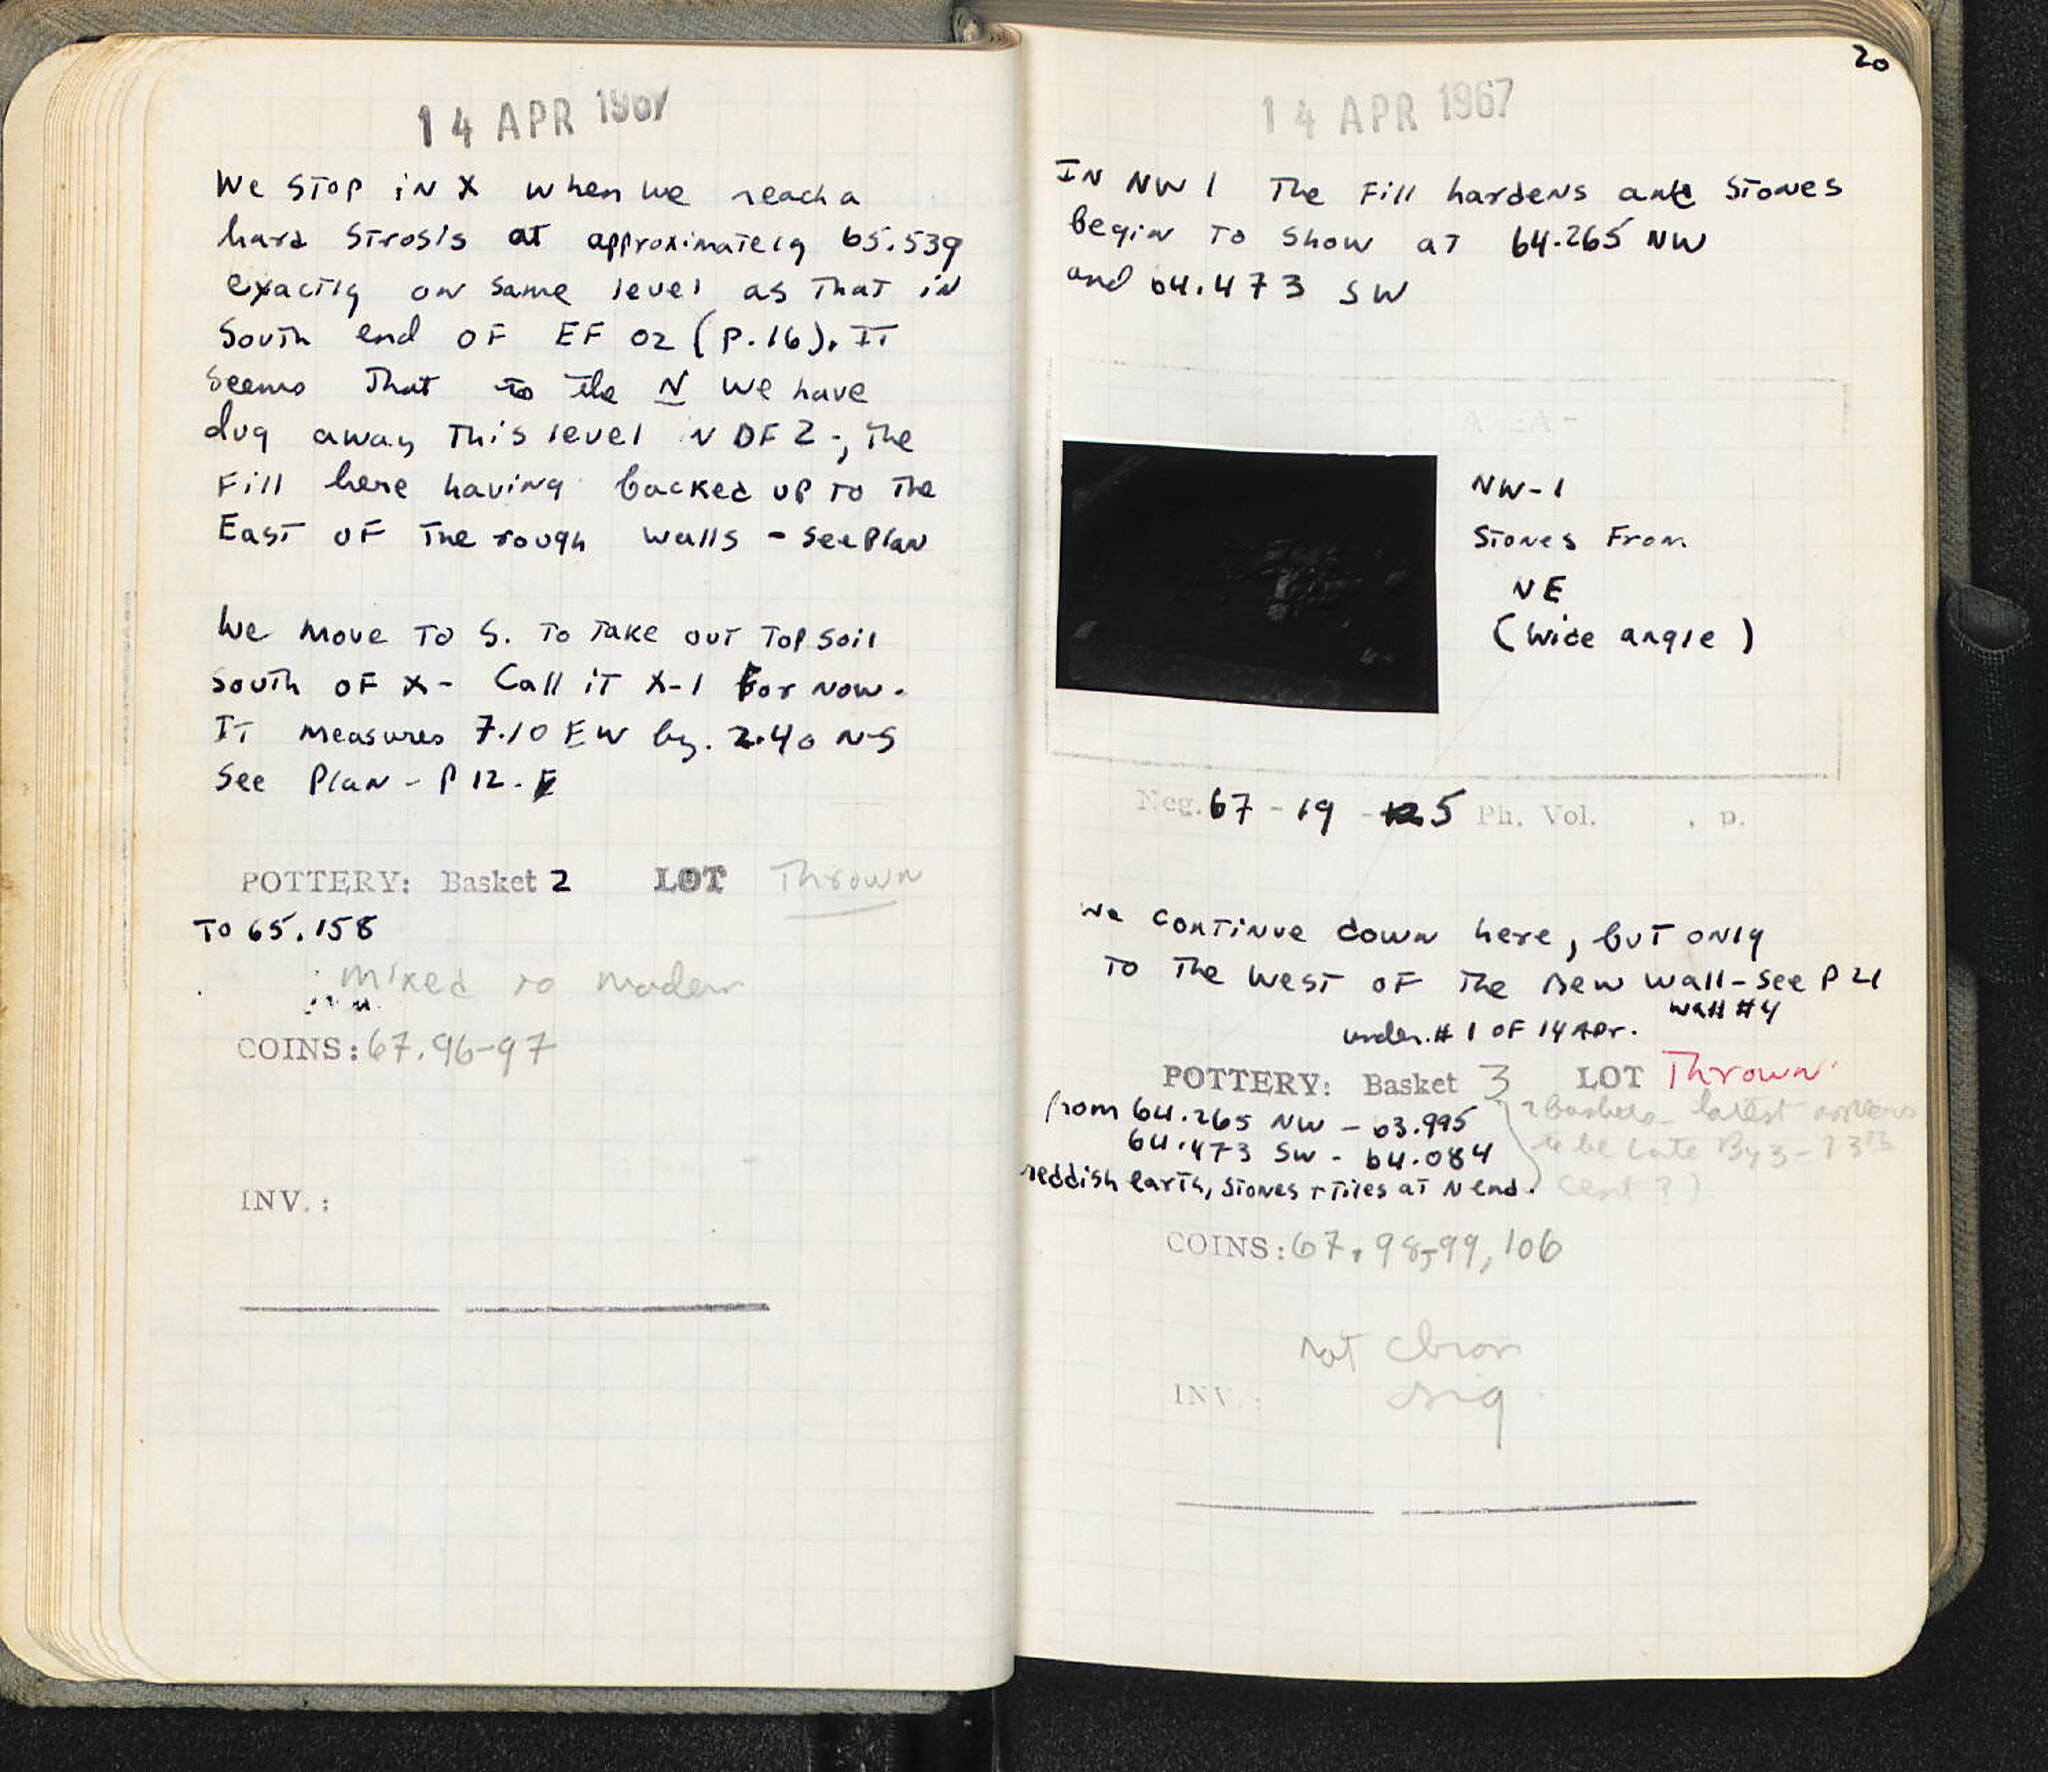 14 APR 1967
We STOP in X when we reach a
hard Strosis at approximately 65.539
exactly on same level as that in
South end OF EF 02 (P.16). IT
seems that to the N we have
dug away this level N DF 2 -, the
Fill here having backed up to the
East OF The rough walls - see Plan
We move to S. To Take out Top soil
South OF X - Call it X-1 For now.
IT measures 7.10 EW by. 2.40 N-S
See Plan - P 12.
POTTERY: Basket 2 LOT Thrown
TO 65.158
mixed to modern
COINS: 67.96-97
INV.:
20
14 APR 1967
IN NW 1 The Fill hardens and Stones
begin to show at 64.265 NW
and 64.473 SW
NW-1
Stones From
NE
(wide angle)
Neg. 67-19-5 Ph. Vol. , p.
We continue down here, but only
to the west of the new wall - see P 21
wall #4
under #1 OF 14 Apr.
POTTERY: Basket 3 LOT Thrown
from 64.265 NW - 63.995
64.473 SW - 64.084
reddish earth, stones + tiles at N end.
2 baskets - latest
to be Late Byz - 13th
cent?)
COINS: 67.98-99, 106
not chron
sig
INV.: